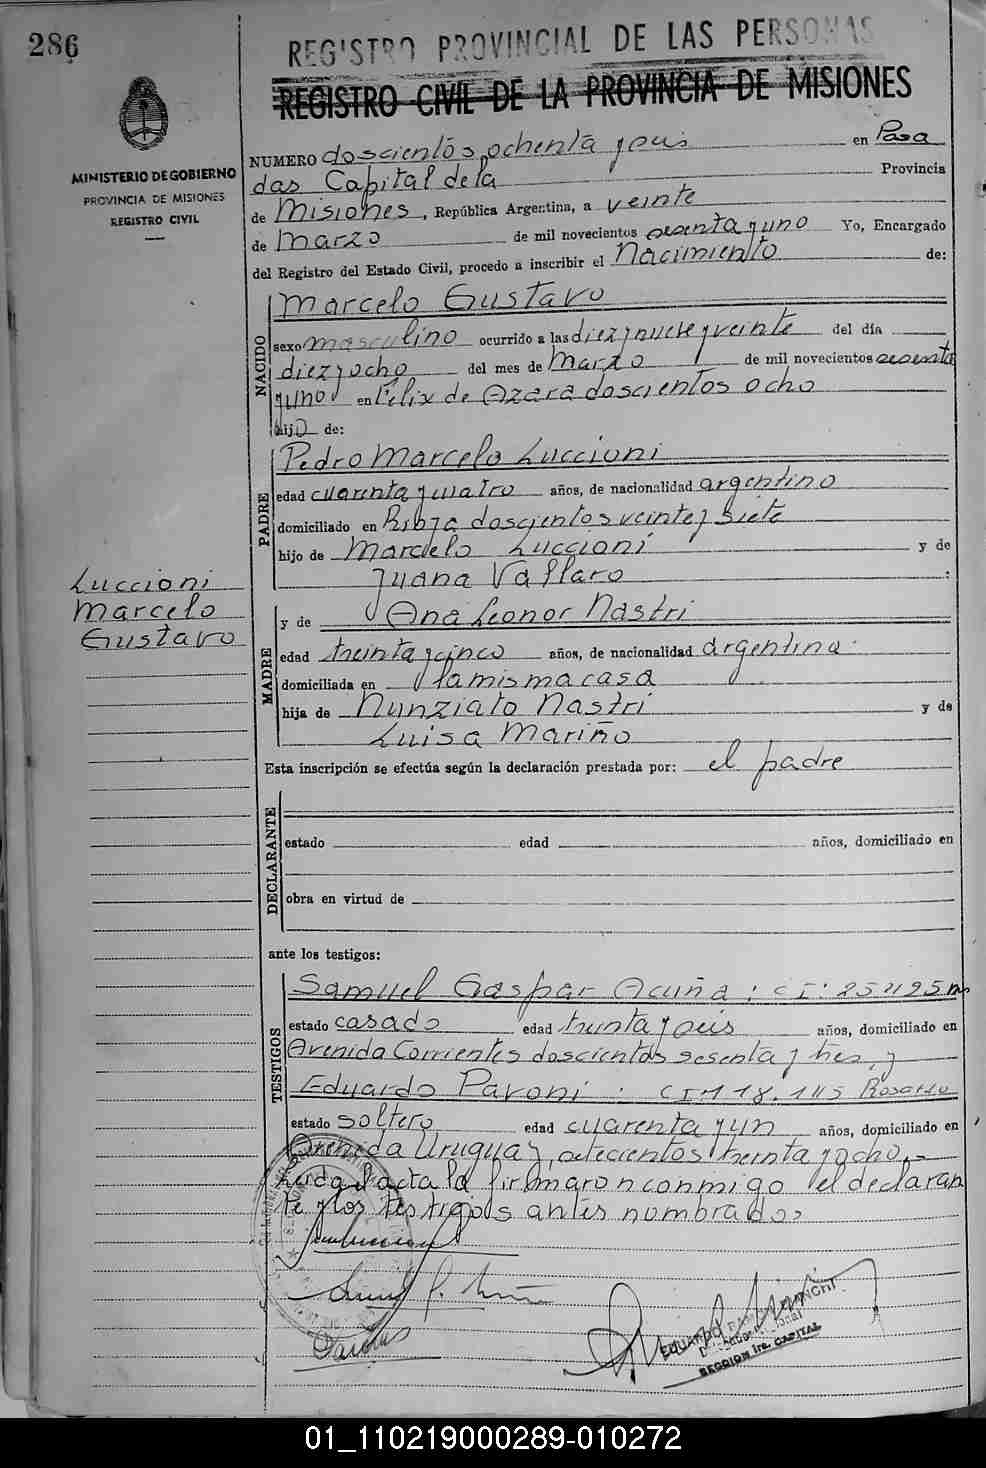 286
REGISTRO PROVINCIAL DE LAS PERSONAS
REGISTRO CIVIL DE LA PROVINCIA DE MISIONES
MINISTERIO DE GOBIERNO
PROVINCIA DE MISIONES
REGISTRO CIVIL
NUMERO doscientos ochenta y seis en Posa
das Capital de la Provincia
de Misiones, República Argentina, a veinte
de Marzo de mil novecientos sesenta y uno Yo, Encargado
del Registro del Estado Civil, procedo a inscribir el Nacimiento de:
NACIDO
Marcelo Gustavo
sexo masculino ocurrido a las diez y nueve y veinte del día
diez y ocho del mes de Marzo de mil novecientos sesenta
y uno en Félix de Azara doscientos ocho
hijo de:
PADRE
Pedro Marcelo Luccioni
edad cuarenta y cuatro años, de nacionalidad argentino
domiciliado en Rioja doscientos veinte y siete
hijo de Marcelo Luccioni y de
Juana Vallaro :
Luccioni
Marcelo
Gustavo
MADRE
y de Ana Leonor Nastri
edad treinta y cinco años, de nacionalidad argentina
domiciliada en la misma casa
hija de Nunziato Nastri y de
Luisa Mariño
Esta inscripción se efectúa según la declaración prestada por: el padre
DECLARANTE
estado edad años, domiciliado en
obra en virtud de
ante los testigos:
TESTIGOS
Samuel Gaspar Acuña : C I :
estado casado edad treinta y seis años, domiciliado en
Avenida Corrientes doscientos sesenta y tres, y
Eduardo Pavoni : Rosario
estado soltero edad cuarenta y un años, domiciliado en
Avenida Uruguay, setecientos treinta y ocho.-
Leida el acta la firmaron conmigo el declaran
te y los testigos antes nombrados
SECCION 1ra. CAPITAL
01_110219000289-010272